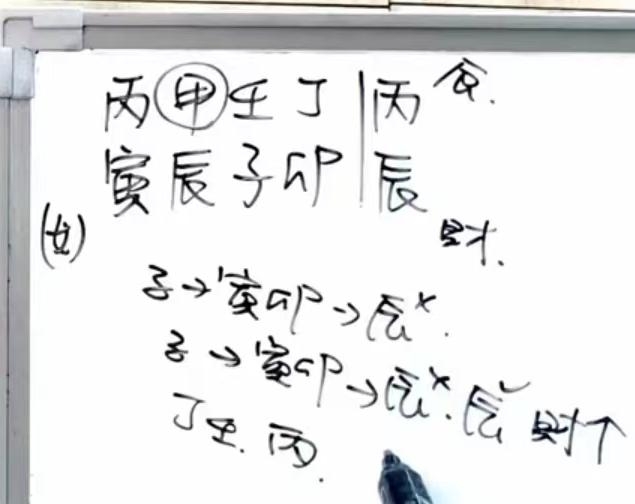 丙甲壬丁|丙食.
寅辰子卯|辰
(女) 财.
子→寅卯→辰×.
子→寅卯→辰×.辰✓财↑
丁壬.丙.